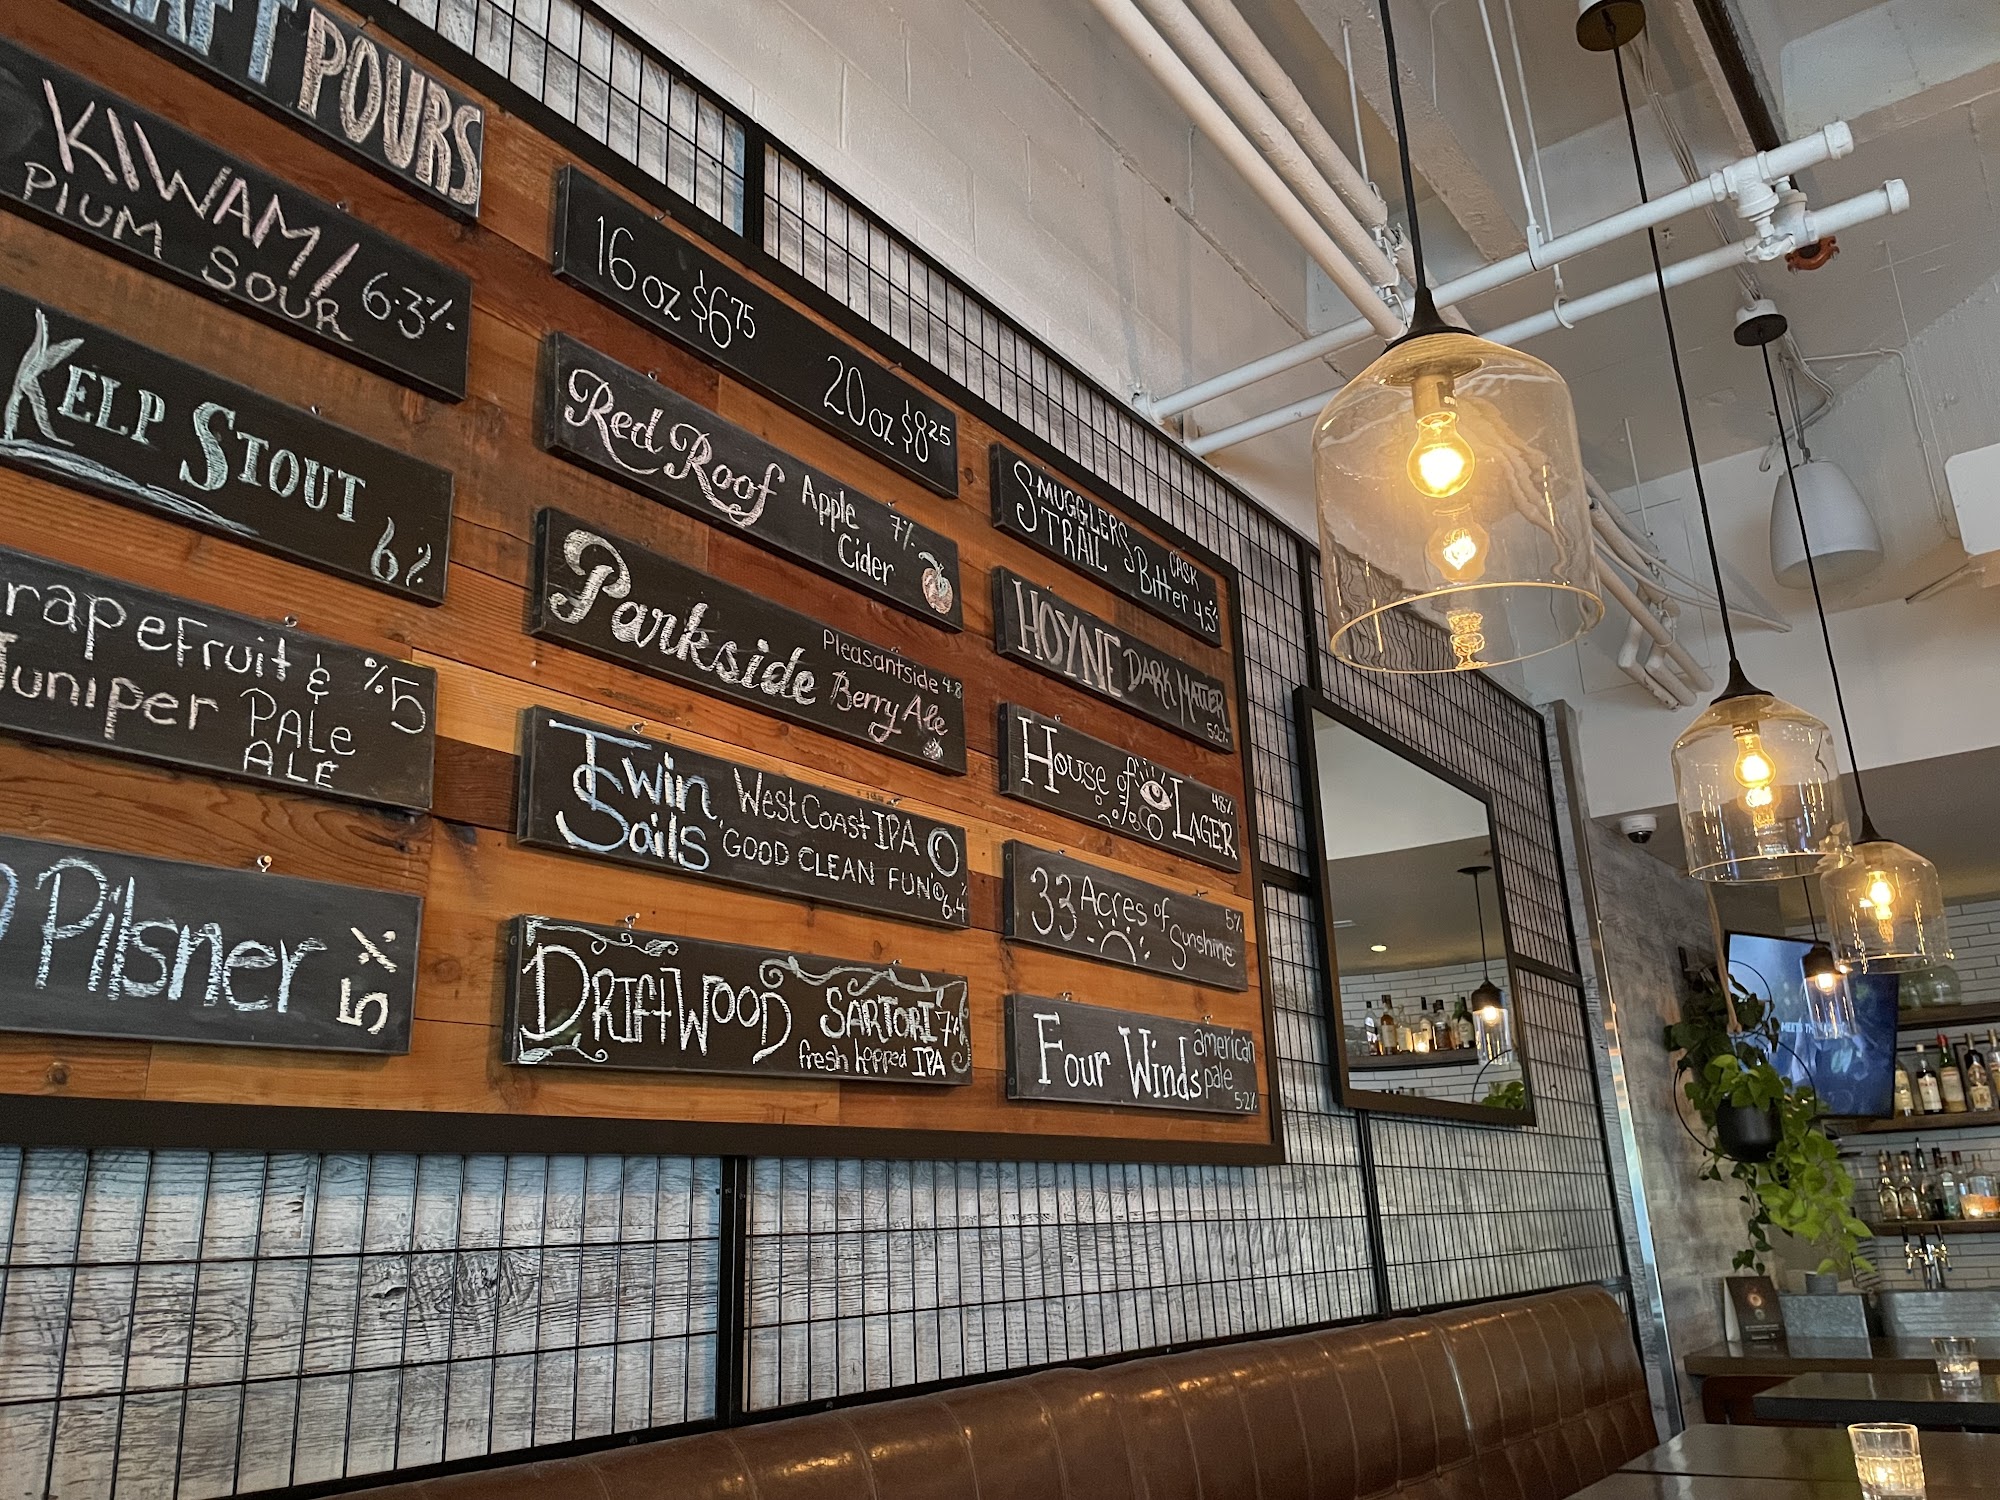 POURS
KIWAMI / 6.3%
PLUM SOUR
KELP STOUT
6%
rapefruit & %5
Juniper PALE
ALE
Pilsner 5%
16oz $6.75 20oz $8.25
Red Roof Apple Cider 7%
Parkside Pleasantside 4.8
Berry Ale
Twin Sails West Coast IPA
'GOOD CLEAN FUN' 6.4%
DRIFTWOOD SARTORI 7%
fresh hopped IPA
SMUGGLERS TRAIL CASK
Bitter 4.5%
HOYNE DARK MATTER
5.2%
House of LAGER 4.8%
33 Acres of Sunshine 5%
Four Winds american pale
5.2%